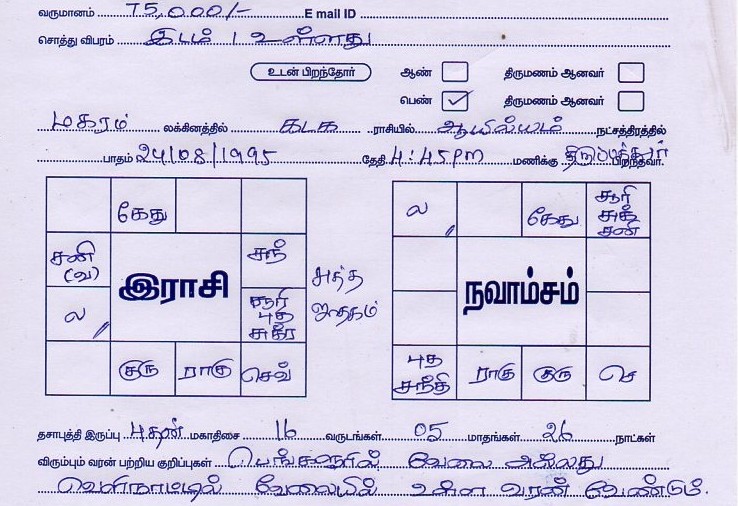 வருமானம் 75,000/- E mail ID
சொத்து விபரம் இடம் 1 உள்ளது
உடன் பிறந்தோர் ஆண் திருமணம் ஆனவர்
பெண் திருமணம் ஆனவர்
மகரம் லக்கினத்தில் கடக ராசியில் ஆயில்யம் நட்சத்திரத்தில்
பாதம் 24/08/1995 தேதி 4:45PM மணிக்கு திருப்பத்தூர் பிறந்தவர்.
கேது
சனி (வ) சந்
ல
இராசி
சூரி புத சுக்ர
குரு ராகு செவ்
சுத்த ஜாதகம்
ல கேது சூரி சுக் சனி
நவாம்சம்
புத சந்தி ராகு குரு செ
தசாபுத்தி இருப்பு புதன் மகாதிசை 16 வருடங்கள் 05 மாதங்கள் 26 நாட்கள்
விரும்பும் வரன் பற்றிய குறிப்புகள் பெங்களூரில் வேலை அல்லது
வெளிநாட்டில் வேலையில் உள்ள வரன் வேண்டும்.